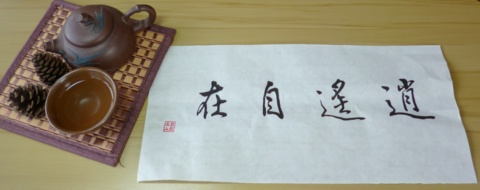 逍遙自在